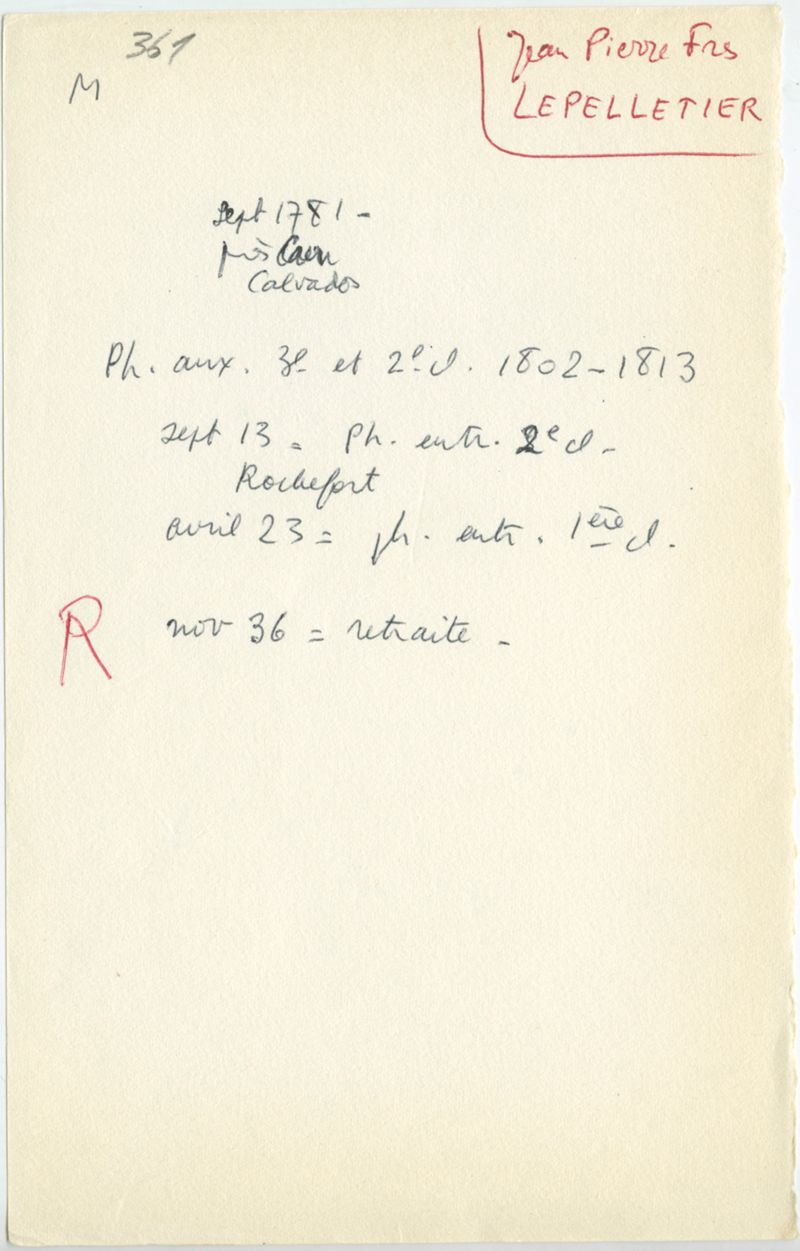 361
M
Jean Pierre Frs
LEPELLETIER
sept 1781 -
près Caen
Calvados
Ph. aux. 3e et 2e cl. 1802-1813
sept 13 = Ph. entr. 2e cl -
Rochefort
avril 23 = ph. entr. 1ère cl.
R
nov 36 = retraite -